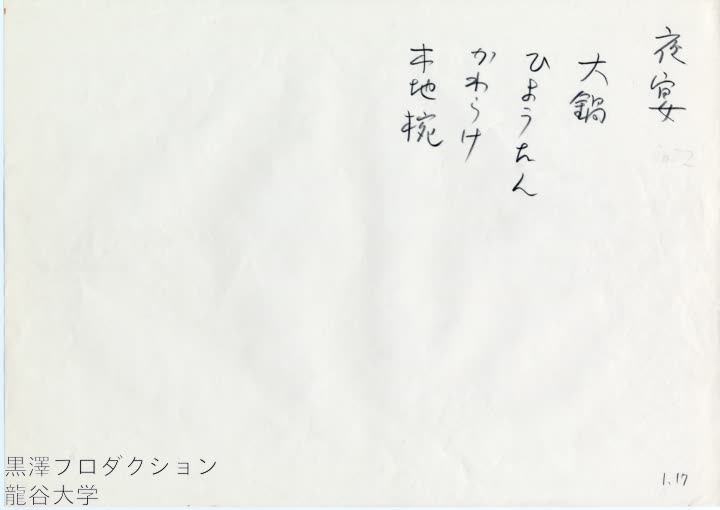 夜宴
大鍋
ひょうたん
かわらけ
木地椀
1.17
黒澤プロダクション
龍谷大学